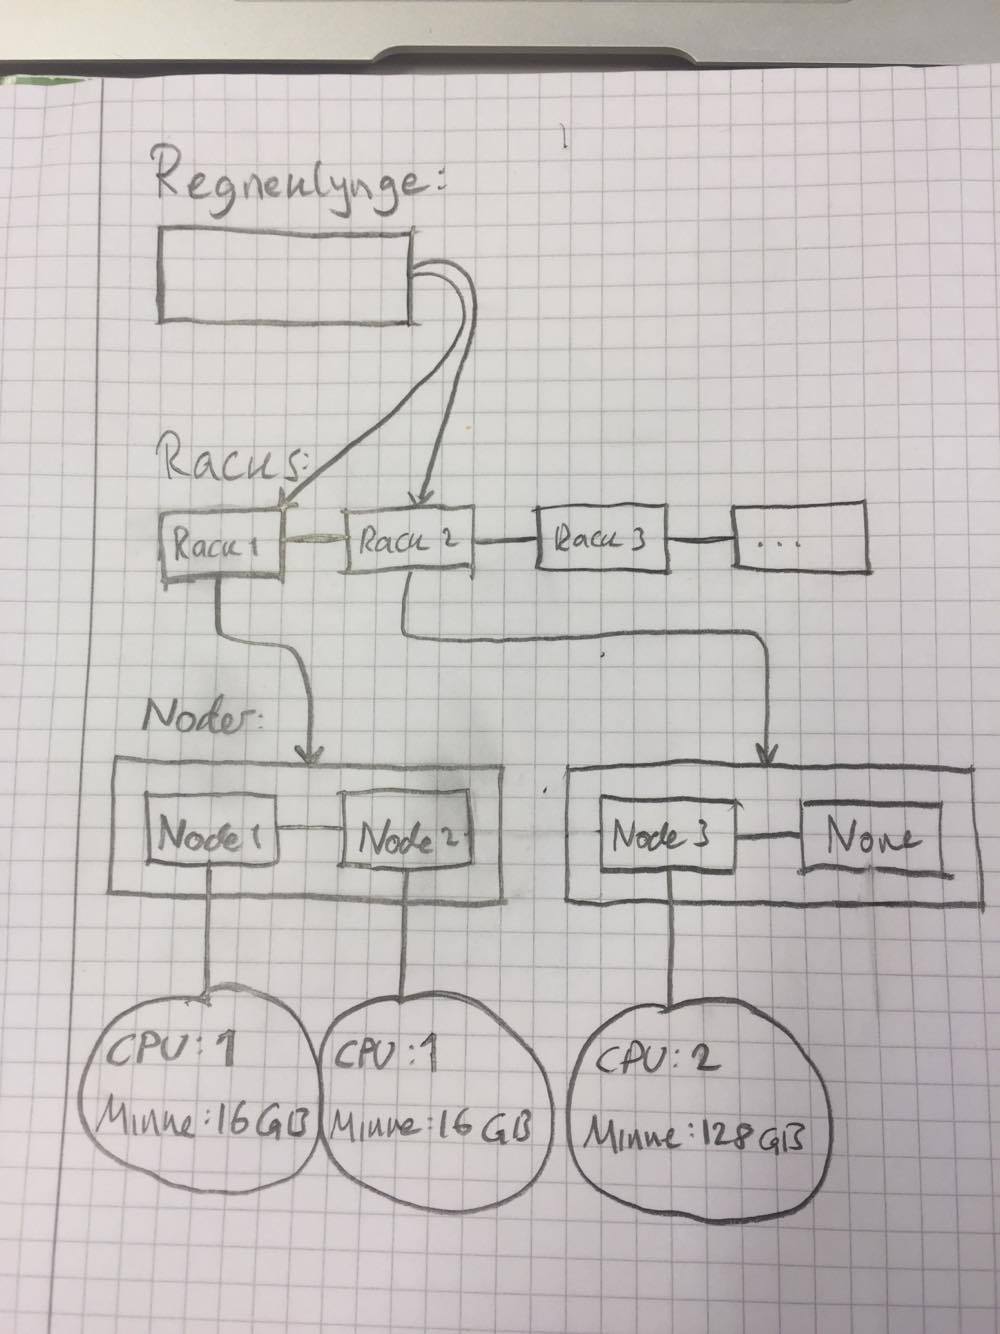 Regneklynge:
Racks:
Rack 1
Rack 2
Rack 3
...
Noder:
Node 1
Node 2
Node 3
None
CPU: 1
Minne: 16 GB
CPU: 1
Minne: 16 GB
CPU: 2
Minne: 128 GB